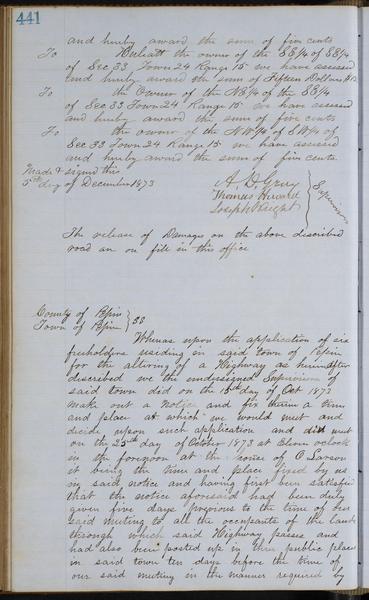 441
and hereby award the sum of five cents
To the owner of the SE/4 of SE/4
of Sec 33 Town 24 Range 15 we have assessed
and hereby award the sum of Fifteen Dollars $15
To the Owner of the NE/4 of the SE/4
of Sec 33 Town 24 Range 15 we have assessed
and hereby award the sum of five cents
To the owner of the NW/4 of SW/4 of
Sec 33 Town 24 Range 15 we have assessed
and hereby award the sum of five cents
Made & signed this
5th day of December 1873
A. D. Gray
Thomas Howard
Joseph Knight
Supervisors
The release of Damages on the above described
road are on file in this office
County of Pepin
Town of Pepin } SS
Whereas upon the application of six
freeholders residing in said town of Pepin
for the altering of a Highway as hereinafter
described we the undersigned Supervisors of
said town did on the 15th day of Oct 1873
make out a Notice and fix therein a time
and place at which we would meet and
decide upon such application and did meet
on the 25th day of October 1873 at Eleven oclock
in the forenoon at the house of C Larson
it being the time and place fixed by us
in said notice and having first been satisfied
that the notice aforesaid had been duly
given five days previous to the time of our
said meeting to all the occupants of the lands
through which said Highway passes and
had also been posted up in three public places
in said town ten days before the time of
our said meeting in the manner required by